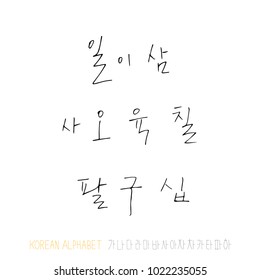 일 이 삼
사 오 육 칠
팔 구 십
KOREAN ALPHABET 가나다라마바사아자차카타파하
shutterstock.com · 1022235055